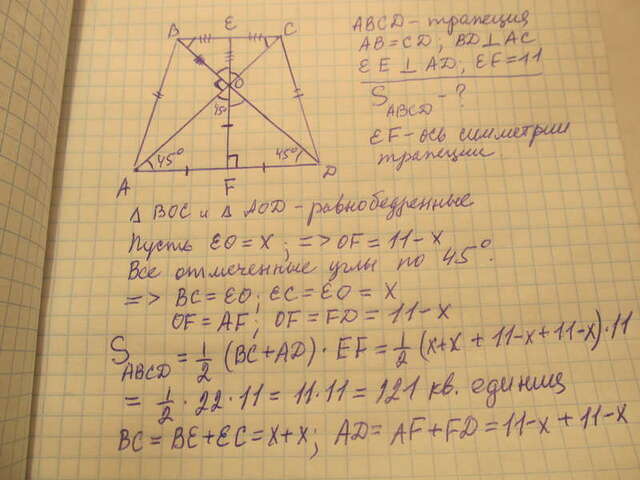 B E C
O
45°
45° 45°
A F D
ABCD - трапеция
AB = CD; BD ⊥ AC
EE ⊥ AD; EF = 11
S ABCD - ?
EF - ось симметрии
трапеции.
Δ BOC и Δ AOD - равнобедренные
Пусть EO = x; => OF = 11 - x
Все отмеченные углы по 45°.
=> BC = EO; EC = EO = x
OF = AF; OF = FD = 11 - x
S ABCD = 1/2 (BC + AD) · EF = 1/2 (x + x + 11 - x + 11 - x) · 11
= 1/2 · 22 · 11 = 11 · 11 = 121 кв. единиц
BC = BE + EC = x + x; AD = AF + FD = 11 - x + 11 - x